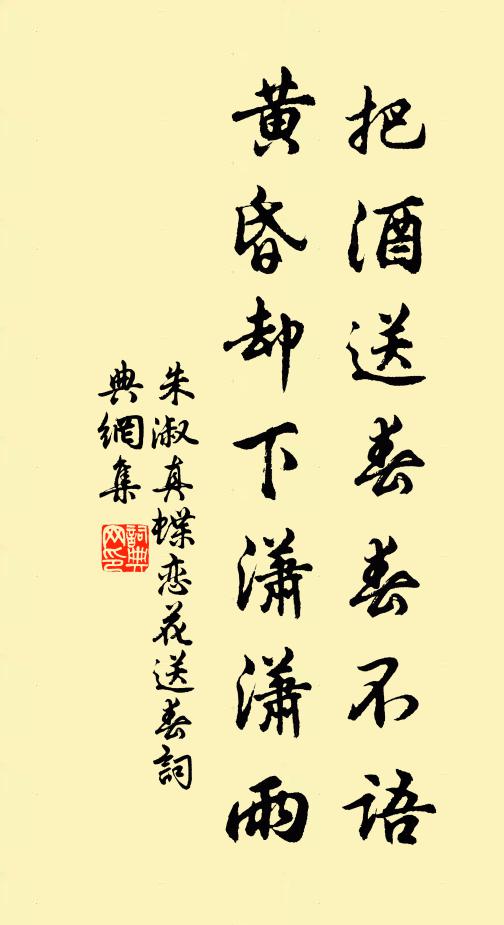 把酒送春春不語
黃昏却下瀟瀟雨
朱淑真蝶恋花送春詞
典網集
詞典
网印